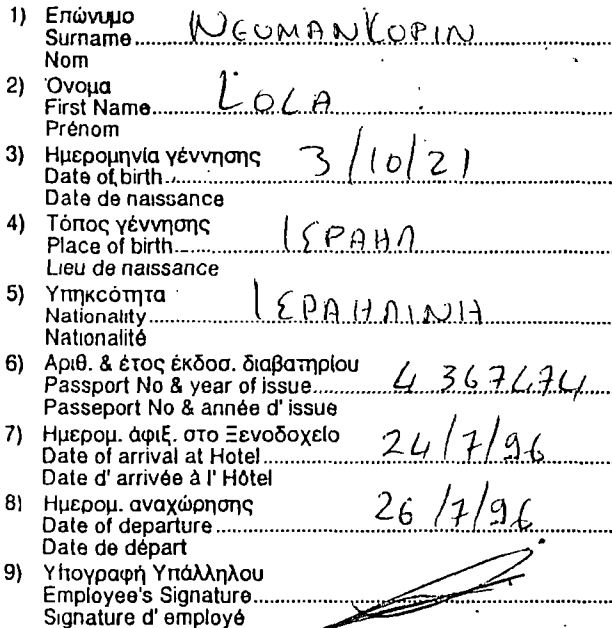 1) Επώνυμο
Surname NEUMANKOPIN
Nom
2) Όνομα
First Name LOLA
Prénom
3) Ημερομηνία γέννησης
Date of birth 3/10/21
Date de naissance
4) Τόπος γέννησης
Place of birth ΙΣΡΑΗΛ
Lieu de naissance
5) Υπηκοότητα
Nationality ΙΣΡΑΗΛΙΝΗ
Nationalité
6) Αριθ. & έτος έκδοσ. διαβατηρίου
Passport No & year of issue 4367474
Passeport No & année d' issue
7) Ημερομ. άφιξ. στο Ξενοδοχείο
Date of arrival at Hotel 24/7/96
Date d' arrivée à l' Hôtel
8) Ημερομ. αναχώρησης
Date of departure 26/7/96
Date de départ
9) Υπογραφή Υπάλληλου
Employee's Signature
Signature d' employé